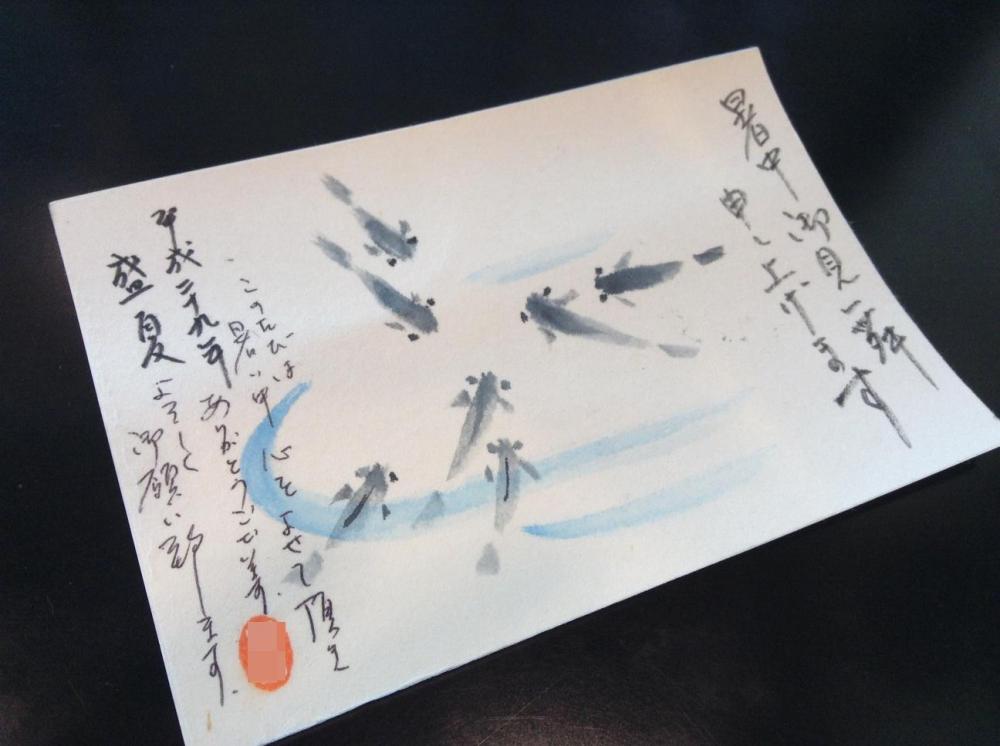 暑中御見舞
申し上げます
このたびは
暑い中 心をよせて頂き
ありがとうございます。
よろしく
御願い致します。
平成二十九年
盛夏